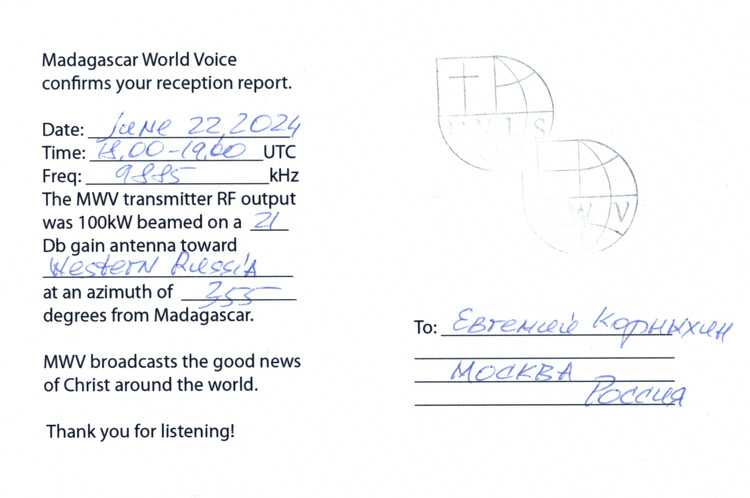 Madagascar World Voice
confirms your reception report.
Date: June 22, 2024
Time: 18,00-19,00 UTC
Freq: 9885 kHz
The MWV transmitter RF output
was 100kW beamed on a 21
Db gain antenna toward
Western Russia
at an azimuth of 355
degrees from Madagascar.
MWV broadcasts the good news
of Christ around the world.
Thank you for listening!
To: Евгений Корныхин
Москва
Россия